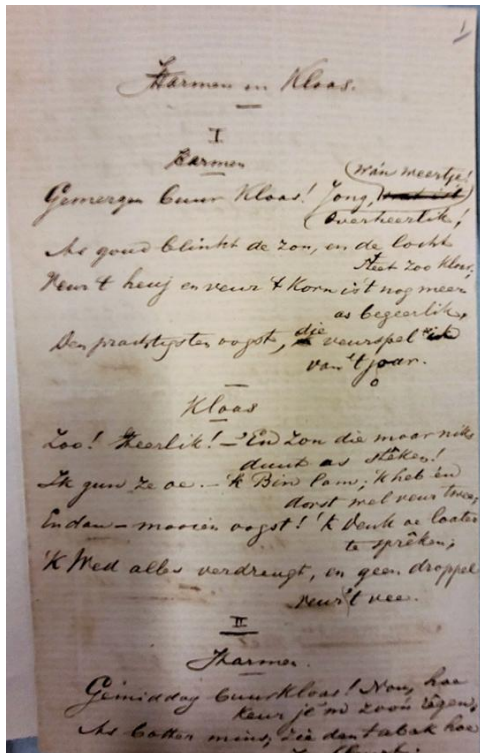 1
Harmen en Kloas.
I
Harmen
wàn weertje!
Gemergen buur Kloas! Jong, wat ist
Overheerlik!
As goud blinkt de zon, en de locht
steet zoo kloar,
Veur 't heuj en veur 't Korn is't nog meer
as begeerlik,
Den prachtigsten oogst, die veurspel ik
van 't joar.
Kloas
Zoo! Heerlik! – 'En zon die moar niks
duut as stêken!
Ik gun ze oe. – 'k Bin lam, 'k heb en
dorst wel veur twee,
En dan – mooien oogst! 'k Venk oe loater
te sprêken;
'k Wed alles verdreugt, en geen droppel
veur 't vee.
II
Harmen.
Gemiddag buur Kloas! Nou, hoe
keur je m zoo'n rêgen,
As botter mins, zie den tabak hoe